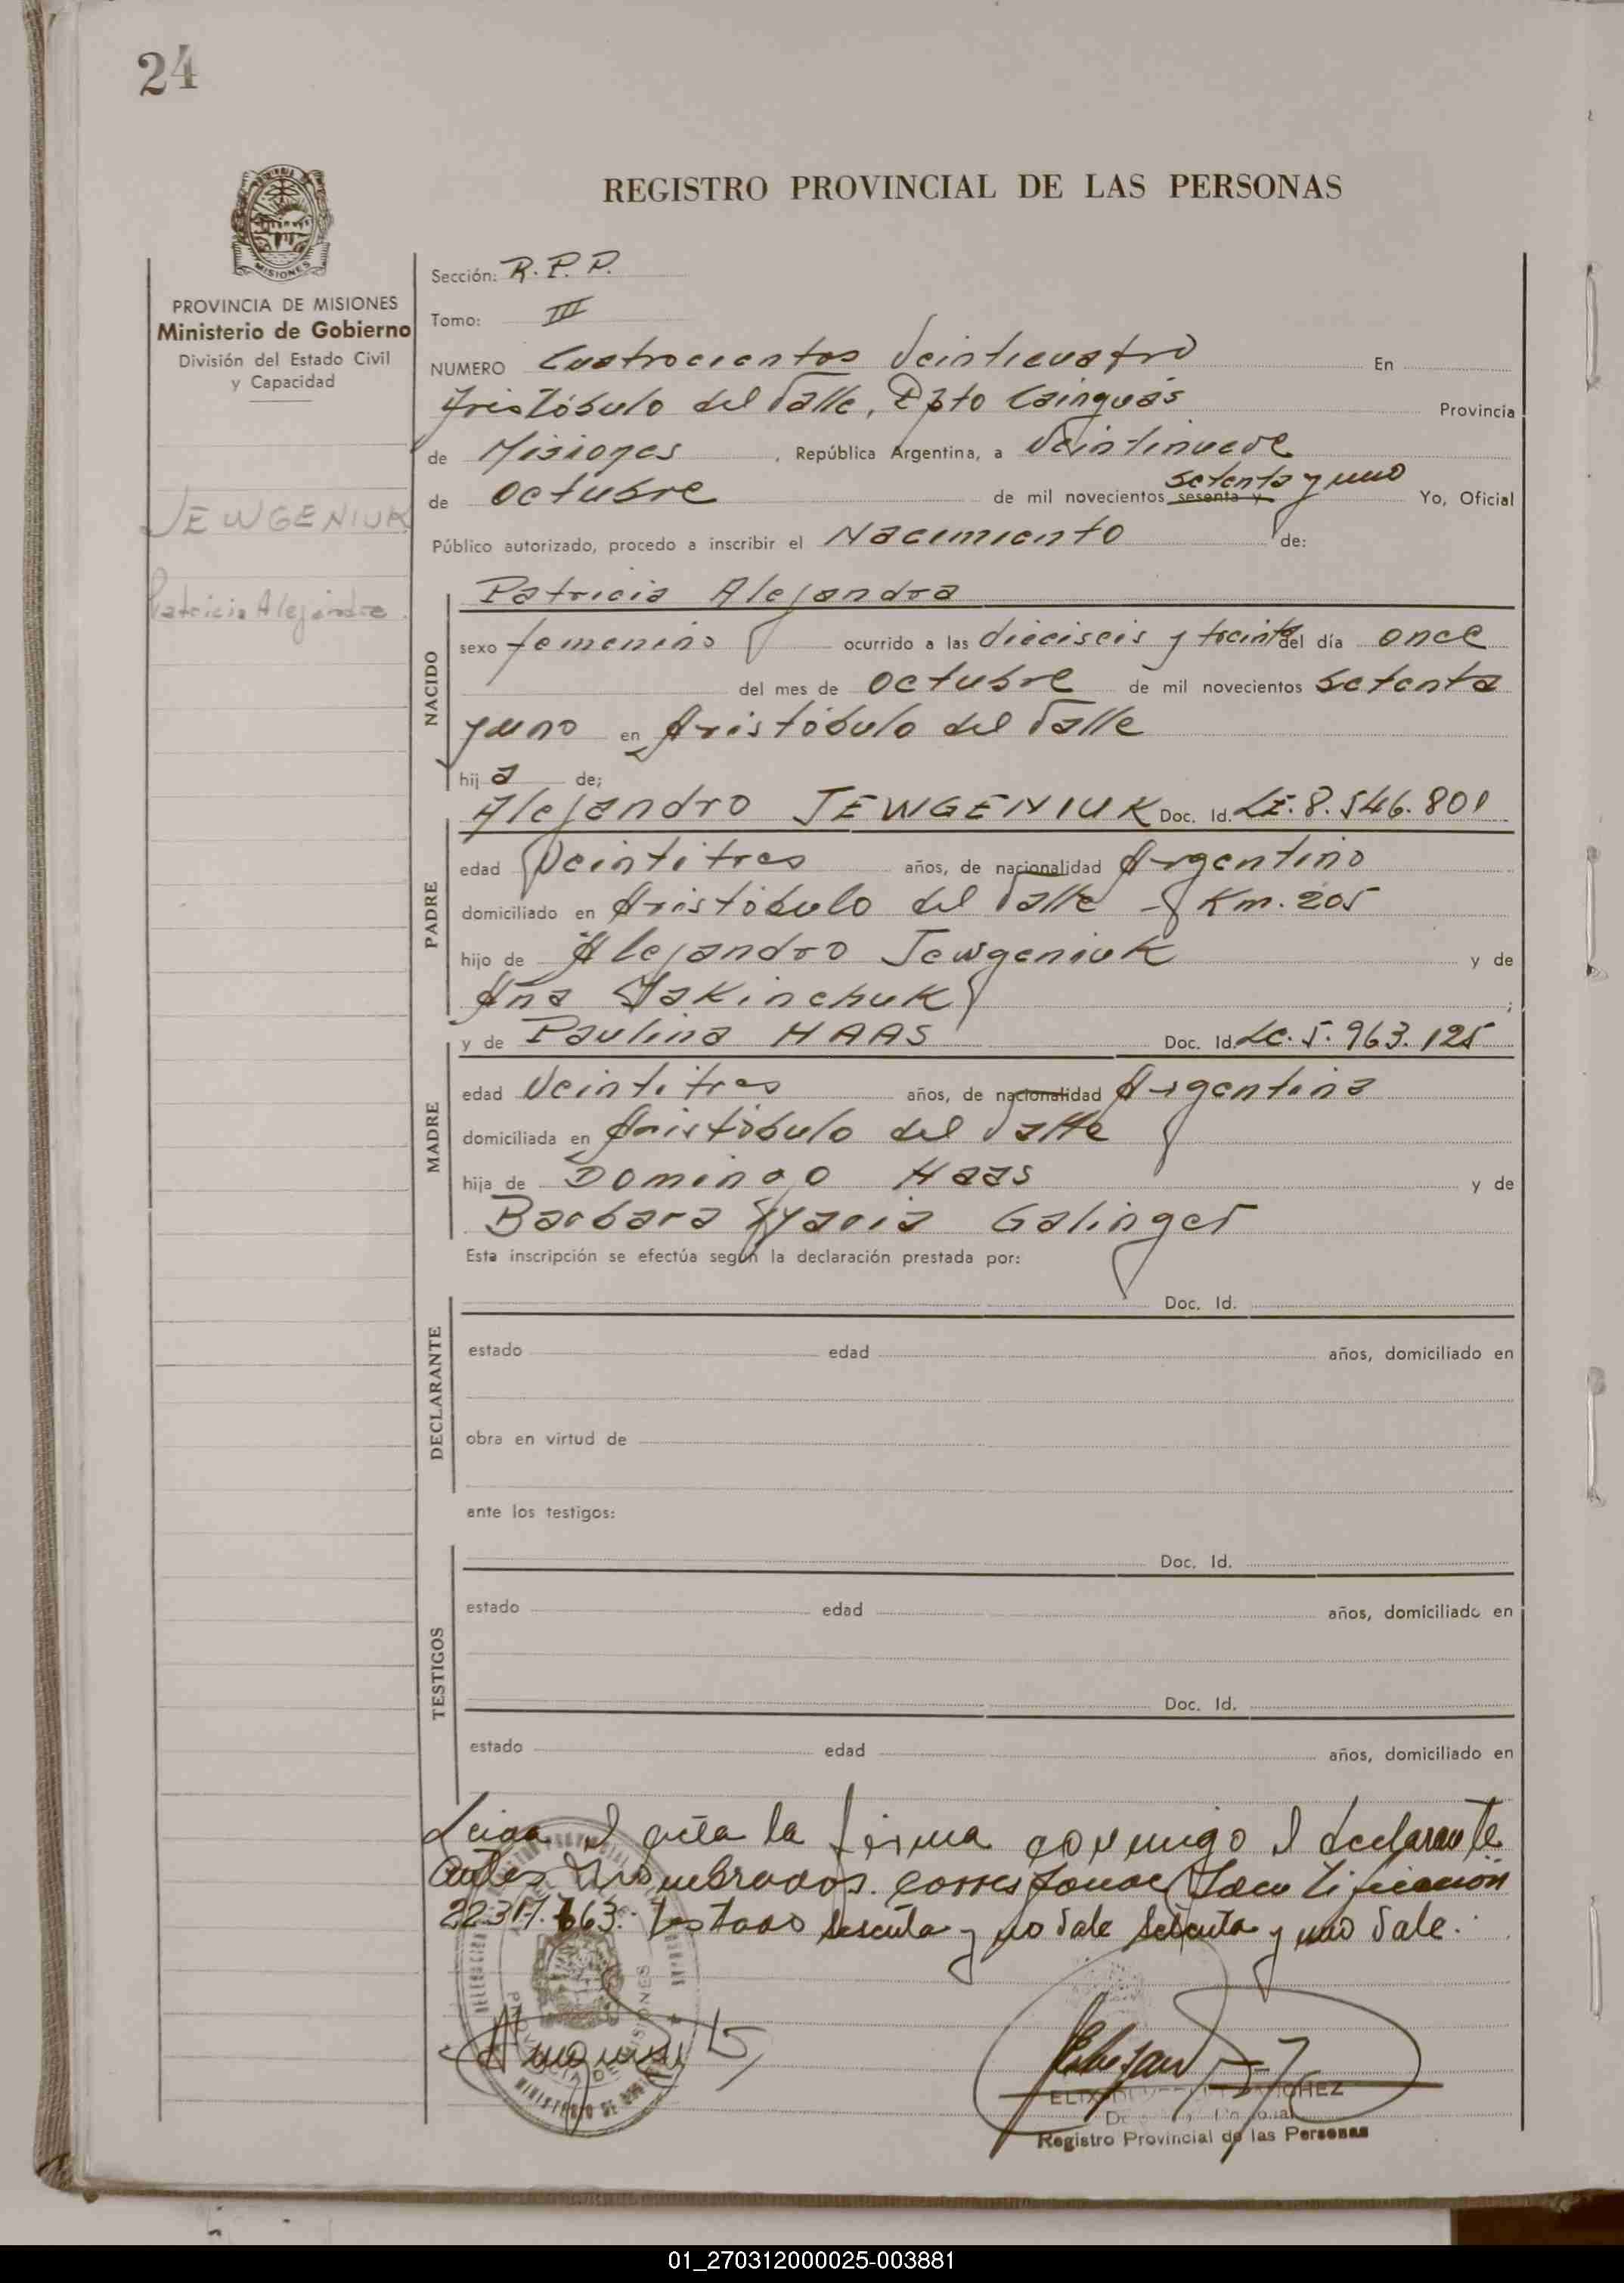 24
REGISTRO PROVINCIAL DE LAS PERSONAS
MISIONES
PROVINCIA DE MISIONES
Ministerio de Gobierno
División del Estado Civil
y Capacidad
JEWGENIUK
Patricia Alejandra
Sección: R.P.P.
Tomo: III
NUMERO Cuatrocientos Veinticuatro En
Aristóbulo del Valle, Dpto Cainguás Provincia
de Misiones, República Argentina, a Veintinueve
de Octubre de mil novecientos sesenta y setenta y uno Yo, Oficial
Público autorizado, procedo a inscribir el Nacimiento de:
NACIDO
Patricia Alejandra
sexo femenino ocurrido a las dieciseis y treinta del día once
del mes de octubre de mil novecientos setenta
y uno en Aristóbulo del Valle
hija de;
PADRE
Alejandro JEWGENIUK Doc. Id. LE. 8.546.801
edad Veintitres años, de nacionalidad Argentino
domiciliado en Aristóbulo del Valle - Km. 205
hijo de Alejandro Jewgeniuk y de
Ana Yakinchuk ;
MADRE
y de Paulina HAAS Doc. Id. LC. 5.963.125
edad Veintitres años, de nacionalidad Argentina
domiciliada en Aristóbulo del Valle
hija de Domingo Haas y de
Barbara Maria Galinger
Esta inscripción se efectúa según la declaración prestada por:
DECLARANTE
Doc. Id.
estado edad años, domiciliado en
obra en virtud de
ante los testigos:
TESTIGOS
Doc. Id.
estado edad años, domiciliado en
Doc. Id.
estado edad años, domiciliado en
Leida el acta la firma conmigo el declarante
antes nombrados. corresponde Identificación
Testado sesenta y no vale setenta y uno vale.
PROVINCIA DE MISIONES
Registro Provincial de las Personas
01_270312000025-003881